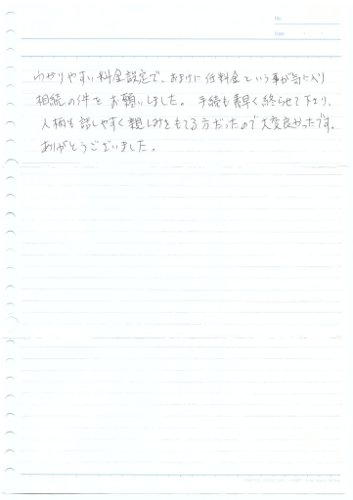 No.
Date
わかりやすい料金設定で、おまけに低料金という事が気に入り
相続の件をお願いしました。手続も素早く終らせて下さり、
人柄も話しやすく親しみをもてる方だったので大変良かったです。
ありがとうございました。